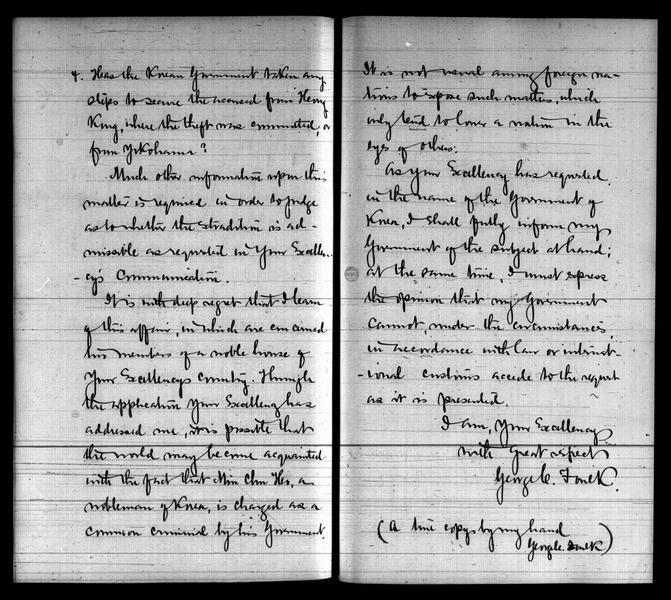 4. Has the Korean Government taken any
steps to secure the accused from Hong
Kong, where the theft was committed, or
from Yokohama?
Much other information upon this
matter is required in order to judge
as to whether the extradition is ad-
missable as requested in Your Excellen-
-cy's Communication.
It is with deep regret that I learn
of this affair, in which are concerned
two members of a noble house of
Your Excellency's country. Through
the application Your Excellency has
addressed me, it is possible that
the world may become acquainted
with the fact that Min Chu Ho, a
nobleman of Korea, is charged as a
common criminal by his Government.
It is not usual among foreign na-
tions to expose such matters, which
only tend to lower a nation in the
eyes of others.
As Your Excellency has requested
in the name of the Government of
Korea, I shall fully inform my
Government of the subject at hand;
at the same time, I must express
the opinion that my Government
cannot, under the circumstances,
in accordance with law or internat-
-ional customs accede to the request
as it is presented.
I am, Your Excellency,
with great respect
George C. Foulk.
(A true copy by my hand
George C. Foulk)